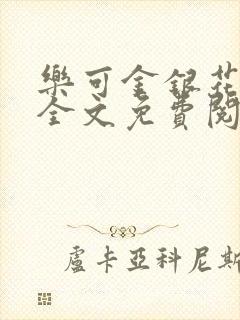 樂可金銀花
全文免費閱
盧卡亞科尼斯